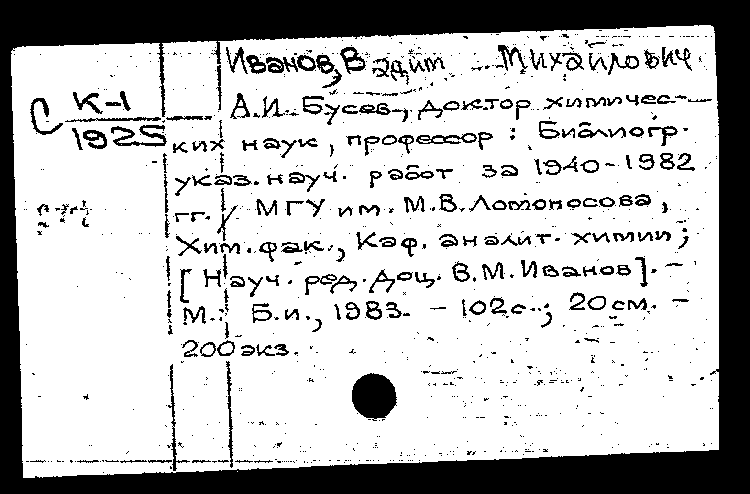 Иванов, Вадим Михайлович.
С К-1
1925
А.И. Бусев, доктор химичес-
ких наук, профессор : Библиогр.
указ. науч. работ за 1940-1982
гг. / МГУ им. М.В. Ломоносова,
Хим. фак., Каф. аналит. химии;
[Науч. ред. доц. В.М. Иванов]. -
М.: Б.и., 1983. - 102с.; 20см. -
200 экз.